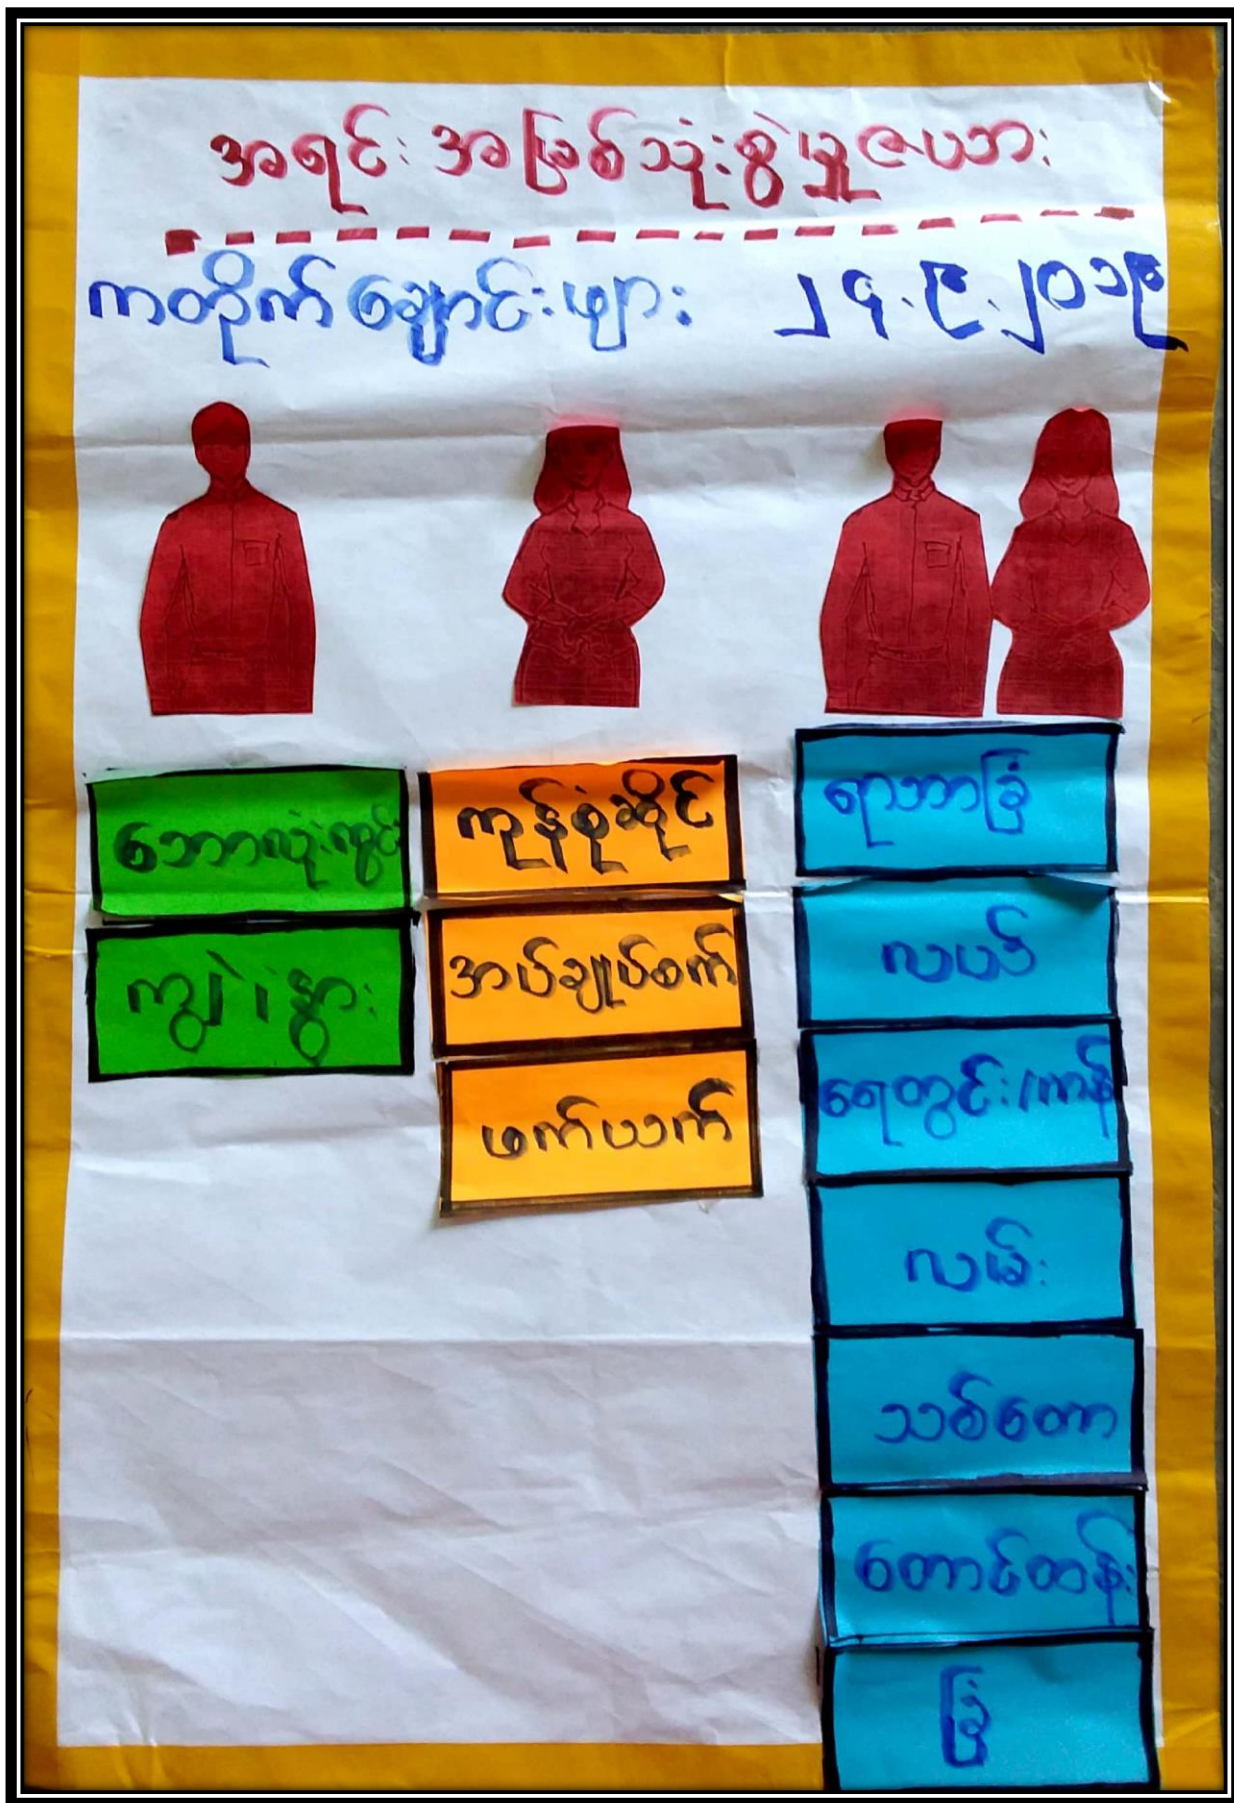 အရင်းအမြစ်သုံးစွဲမှုဇယား
ကတိုက်ချောင်းဖျား ၂၄.၉.၂၀၁၉
ဘောလုံးကွင်း
ကျွဲ၊နွား
ကုန်စုံဆိုင်
အပ်ချုပ်စက်
ဖက်ယက်
ရာဘာခြံ
လယ်
ရေတွင်း/ကန်
လမ်း
သစ်တော
တောင်တန်း
ခြံ